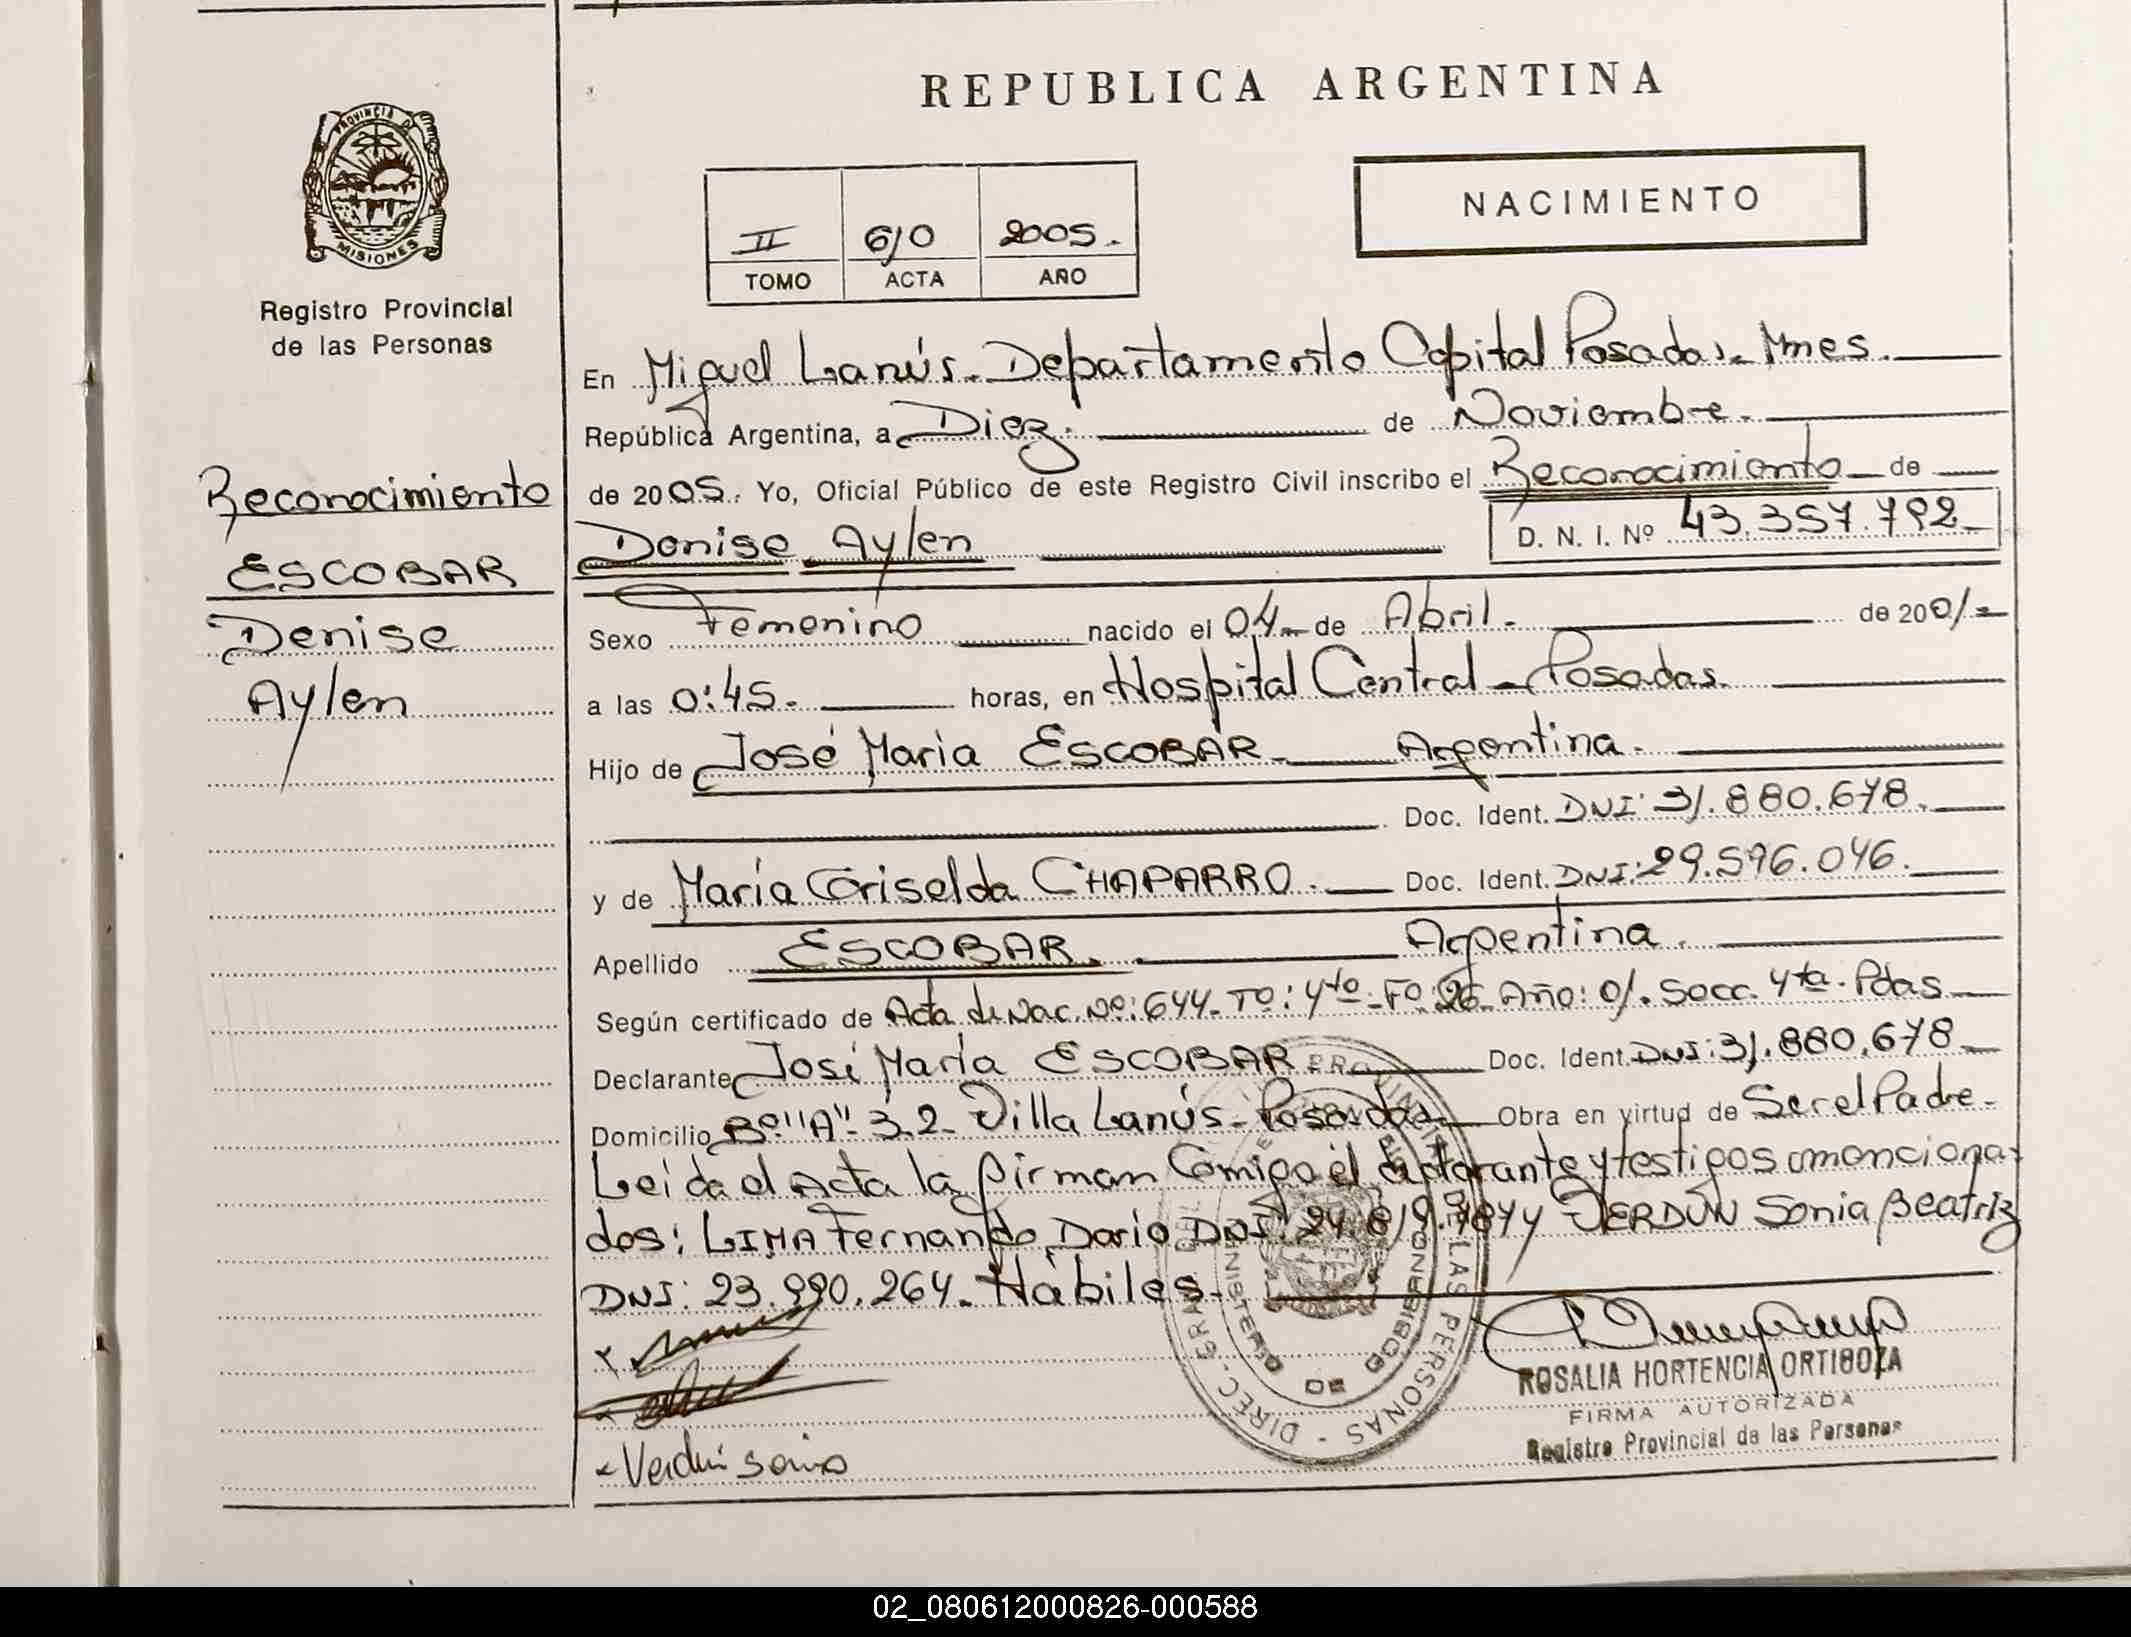 REPUBLICA ARGENTINA
PROVINCIA DE
MISIONES
Registro Provincial
de las Personas
NACIMIENTO
II 610 2005.
TOMO ACTA AÑO
En Miguel Lanús - Departamento Capital Posadas - Mnes.
República Argentina, a Diez. de Noviembre.
de 2005. Yo, Oficial Público de este Registro Civil inscribo el Reconocimiento de
Denise Aylen D. N. I. Nº 43.357.792
Sexo Femenino nacido el 04 de Abril. de 2001
a las 0:45. horas, en Hospital Central - Posadas.
Hijo de José Maria ESCOBAR Argentina.
Doc. Ident. DNI: 31.880.678.
y de María Griselda CHAPARRO. Doc. Ident. DNI: 29.596.046.
Apellido ESCOBAR. Argentina.
Según certificado de Acta de Nac. Nº: 644 - Tº: 4to - Fº: 26 Año: 01. Secc. 4ta. Pdas
Declarante José María ESCOBAR Doc. Ident. DNI: 31.880.678
Domicilio Bº "A" 3.2 - Villa Lanús - Posadas Obra en virtud de Ser el Padre -
Leida el Acta la firman Comigo el declarante y testigos amenciona-
dos: LIMA Fernando Dario DNI: 24. y VERDÚN Sonia Beatriz
DNI: 23.990.264. Hábiles
Verdún Sonia
Reconocimiento
ESCOBAR
Denise
Aylen
DIREC. GRAL. PROVINCIAL DE LAS PERSONAS
MINISTERIO DE GOBIERNO
ROSALIA HORTENCIA ORTIGOZA
FIRMA AUTORIZADA
Registro Provincial de las Personas
02_080612000826-000588